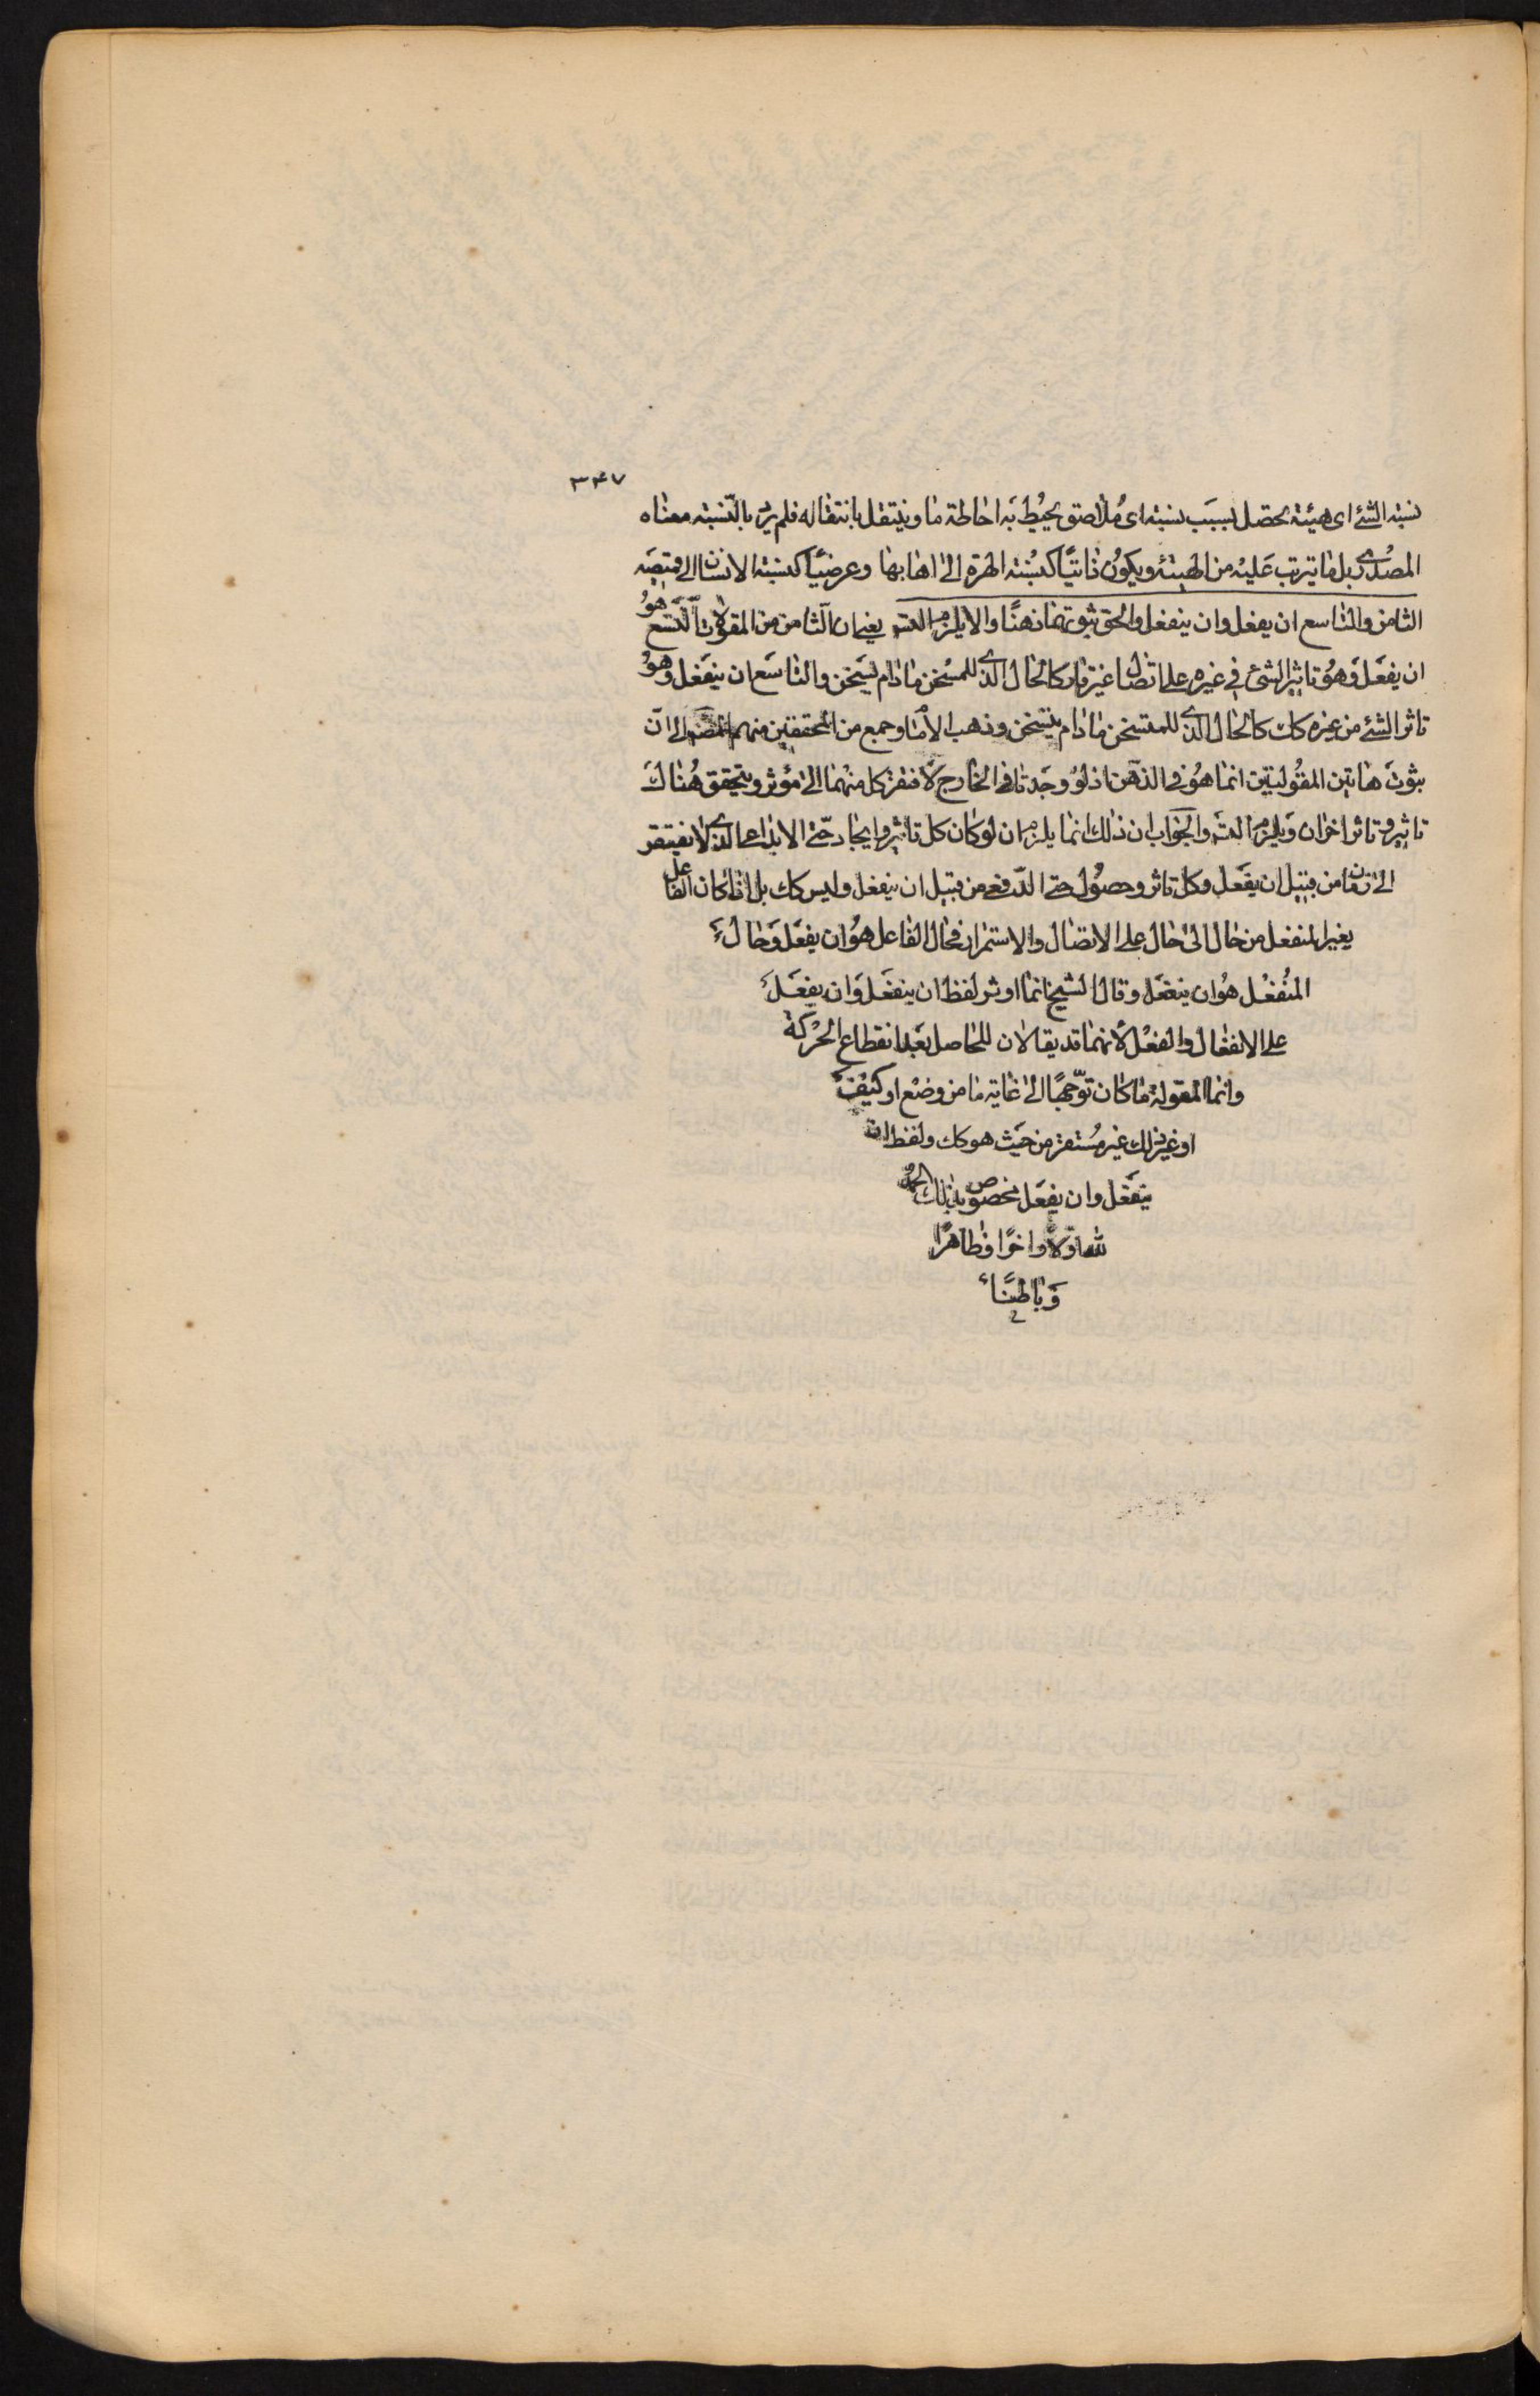 ٣٤٧
نسبته الشئ اى هيئة تحصل بسبب نسبته اى ملاصق يحيط به احاطة ما وينتقل بانتقاله فلم يرد بالنسبته معناه
المصدرى بل ما يترتب عليه من الهيئة ويكون ذاتيًا كنسبته الهرة الى اهابها وعرضيًا كنسبته الانسان الى قميصه
الثامن والتاسع ان يفعل وان ينفعل والحق ثبوتهما ذهنًا والا يلزم التسـ يعنى ان الثامن من المقولات التسع هو
ان يفعل وهو تاثير الشئ فى غيره على اتصال غير قار كالحال الذى للمسخن ما دام يسخن والتاسع ان ينفعل وهو
تاثر الشئ من غيره كك كالحال الذى للمتسخن ما دام يتسخن وذهب الامام وجمع من المحققين منهم المصـ الى ان
ثبوت هاتين المقولتين انما هو فى الذهن اذ لو وجدتا فى الخارج لافتقر كل منهما الى مؤثر ويتحقق هناك
تاثير وتاثر اخران ويلزم التسـ والجواب ان ذلك انما يلزم ان لو كان كل تاثير وايجاد حتى الابداعى الذى لا يفتقر
الى زمان من قبيل ان يفعل وكل تاثر وحصول حتى الدفعى من قبيل ان ينفعل وليس كك بل اذا كان الفاعل
يغير المنفعل من حال الى حال على الاتصال والاستمرار فحال الفاعل هو ان يفعل وحال
المنفعل هو ان ينفعل وقال الشيخ انما اوثر لفظ ان ينفعل وان يفعل
على الانفعال والفعل لانهما قد يقالان للحاصل بعد انقطاع الحركة
وانما المقولة ما كان توجهًا الى غاية ما من وضع او كيف
او غير ذلك غير مستقر من حيث هو كك ولفظ ان
ينفعل وان يفعل مخصوص بذلك الحمد
لله اولًا واخرًا وظاهرًا
وباطنًا